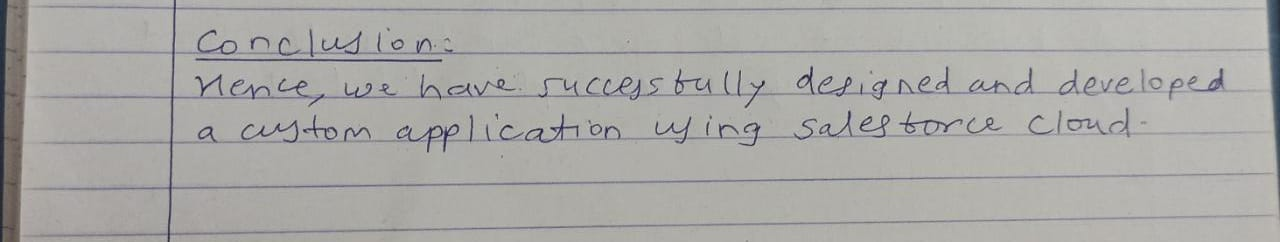 Conclusion:
Hence, we have successfully designed and developed
a custom application using salesforce cloud.